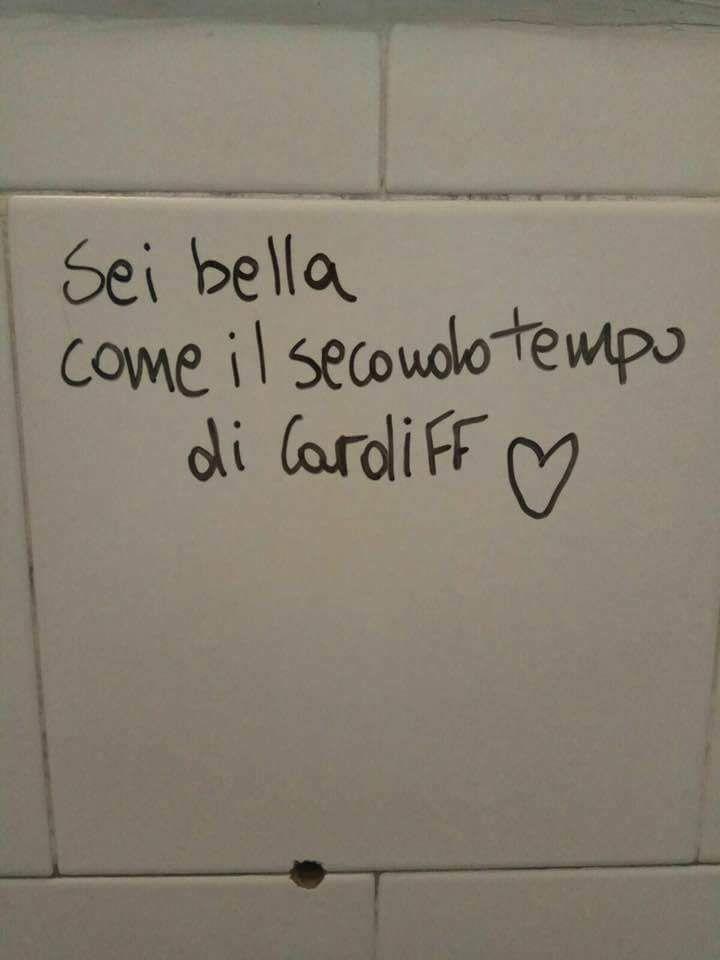 Sei bella
come il secondo tempo
di Cardiff